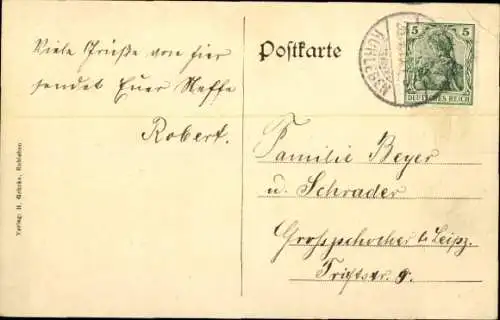 Viele Grüße von hier
sendet Euer Neffe
Robert.
Postkarte
5 5
DEUTSCHES REICH
Familie Beyer
u. Schrader
Grosszschocher b. Leipz.
Triftstr. 9.
Verlag: H. Gehrke, Roßleben